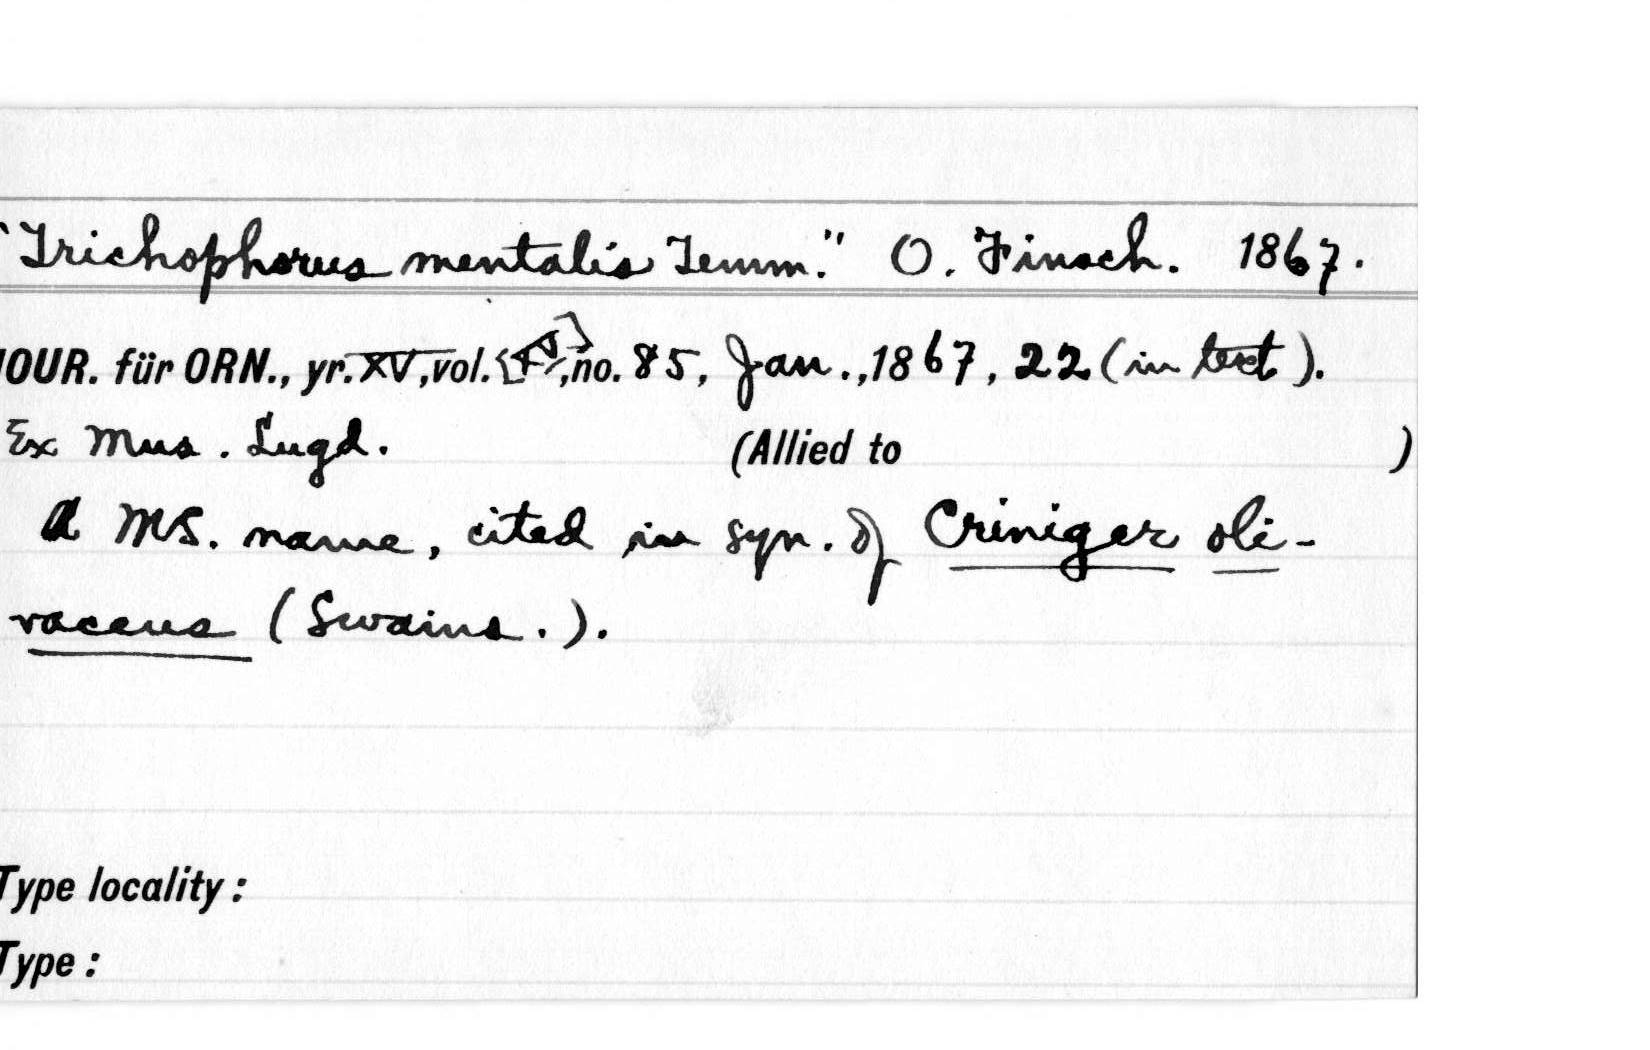 "Trichophorus mentalis Temm." O. Finsch. 1867.
JOUR. für ORN., yr. XV, vol. [XV], no. 85, Jan., 1867, 22 (in text).
Ex Mus. Lugd. (Allied to )
A MS. name, cited in syn. of Criniger oli-
vaceus (Swains.).
Type locality:
Type: